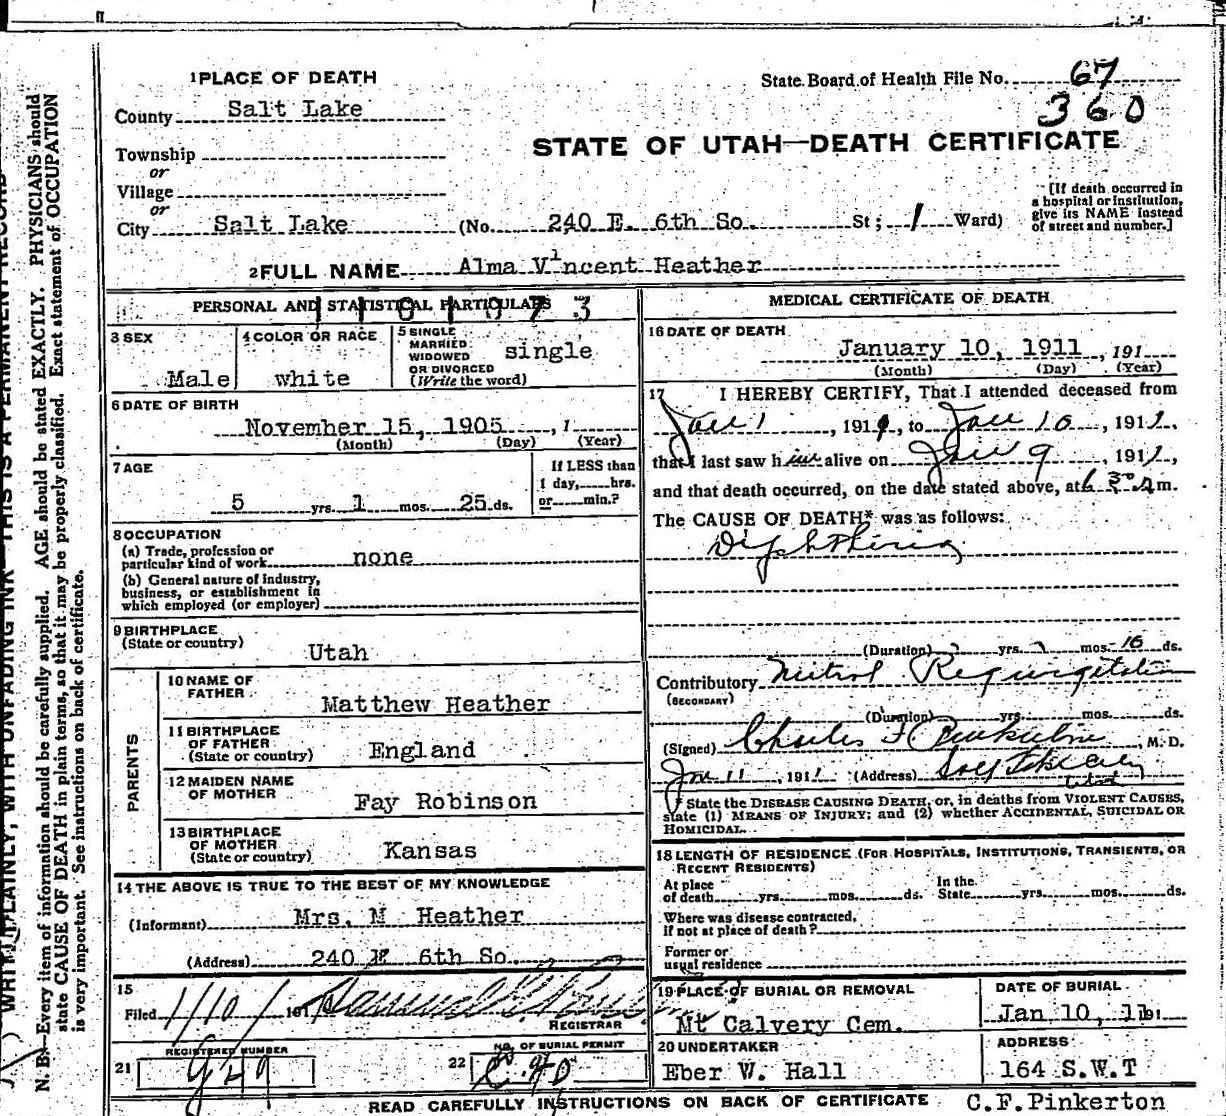 1 PLACE OF DEATH
State Board of Health File No. 67
360
County Salt Lake
STATE OF UTAH—DEATH CERTIFICATE
Township
or
Village
or
City Salt Lake (No. 240 E. 6th So. St; 1 Ward)
[If death occurred in
a hospital or institution,
give its NAME instead
of street and number.]
2 FULL NAME Alma Vincent Heather
PERSONAL AND STATISTICAL PARTICULARS
3 SEX
Male
4 COLOR OR RACE
white
5 SINGLE
MARRIED
WIDOWED
OR DIVORCED
(Write the word)
single
6 DATE OF BIRTH
November 15, 1905, 1
(Month) (Day) (Year)
7 AGE
5 yrs. 1 mos. 25 ds.
If LESS than
1 day, hrs.
or min.?
8 OCCUPATION
(a) Trade, profession or
particular kind of work none
(b) General nature of industry,
business, or establishment in
which employed (or employer)
9 BIRTHPLACE
(State or country)
Utah
PARENTS
10 NAME OF
FATHER
Matthew Heather
11 BIRTHPLACE
OF FATHER
(State or country)
England
12 MAIDEN NAME
OF MOTHER
Fay Robinson
13 BIRTHPLACE
OF MOTHER
(State or country)
Kansas
14 THE ABOVE IS TRUE TO THE BEST OF MY KNOWLEDGE
(Informant) Mrs. M Heather
(Address) 240 E 6th So.
15
Filed 1/10/ 191
REGISTRAR
21
REGISTERED NUMBER
22
NO. OF BURIAL PERMIT
MEDICAL CERTIFICATE OF DEATH
16 DATE OF DEATH
January 10, 1911, 191
(Month) (Day) (Year)
17 I HEREBY CERTIFY, That I attended deceased from
Jan 1, 1911, to Jan 10, 1911,
that I last saw him alive on Jan 9, 1911,
and that death occurred, on the date stated above, at 6 30 A m.
The CAUSE OF DEATH* was as follows:
Diphtheria
(Duration) yrs. mos. 10 ds.
Contributory Mitral Regurgitation
(SECONDARY)
(Duration) yrs. mos. ds.
(Signed) Charles F Pinkerton, M. D.
Jan 11, 1911 (Address) Salt Lake City
Utah
* State the DISEASE CAUSING DEATH, or, in deaths from VIOLENT CAUSES,
state (1) MEANS OF INJURY; and (2) whether ACCIDENTAL, SUICIDAL OR
HOMICIDAL.
18 LENGTH OF RESIDENCE (FOR HOSPITALS, INSTITUTIONS, TRANSIENTS, OR
RECENT RESIDENTS)
At place
of death yrs. mos. ds.
In the
State yrs. mos. ds.
Where was disease contracted,
if not at place of death?
Former or
usual residence
19 PLACE OF BURIAL OR REMOVAL
Mt Calvery Cem.
DATE OF BURIAL
Jan 10, 11 191
20 UNDERTAKER
Eber W. Hall
ADDRESS
164 S.W.T
READ CAREFULLY INSTRUCTIONS ON BACK OF CERTIFICATE C.F.Pinkerton
WRITE PLAINLY, WITH UNFADING INK—THIS IS A PERMANENT RECORD
N. B.—Every item of information should be carefully supplied. AGE should be stated EXACTLY. PHYSICIANS should
state CAUSE OF DEATH in plain terms, so that it may be properly classified. Exact statement of OCCUPATION
is very important. See instructions on back of certificate.